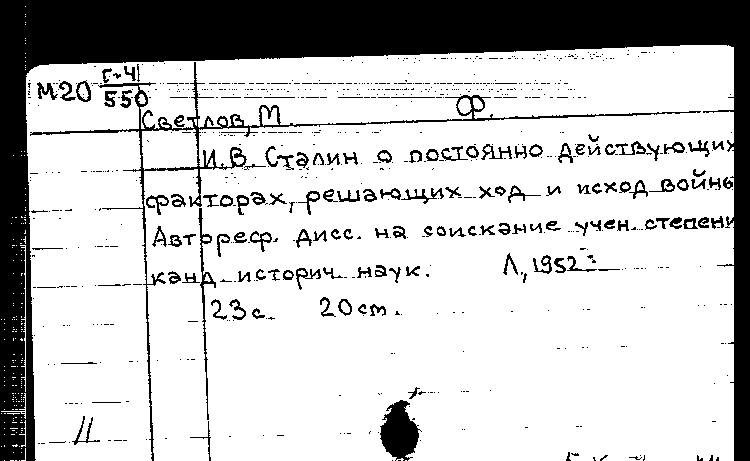 М20 Г-4/550
Светлов, М. Ф.
И.В. Сталин о постоянно действующих
факторах, решающих ход и исход войны
Автореф. дисс. на соискание учен. степени
канд. историч. наук. Л., 1952
23 с. 20 ст.
11